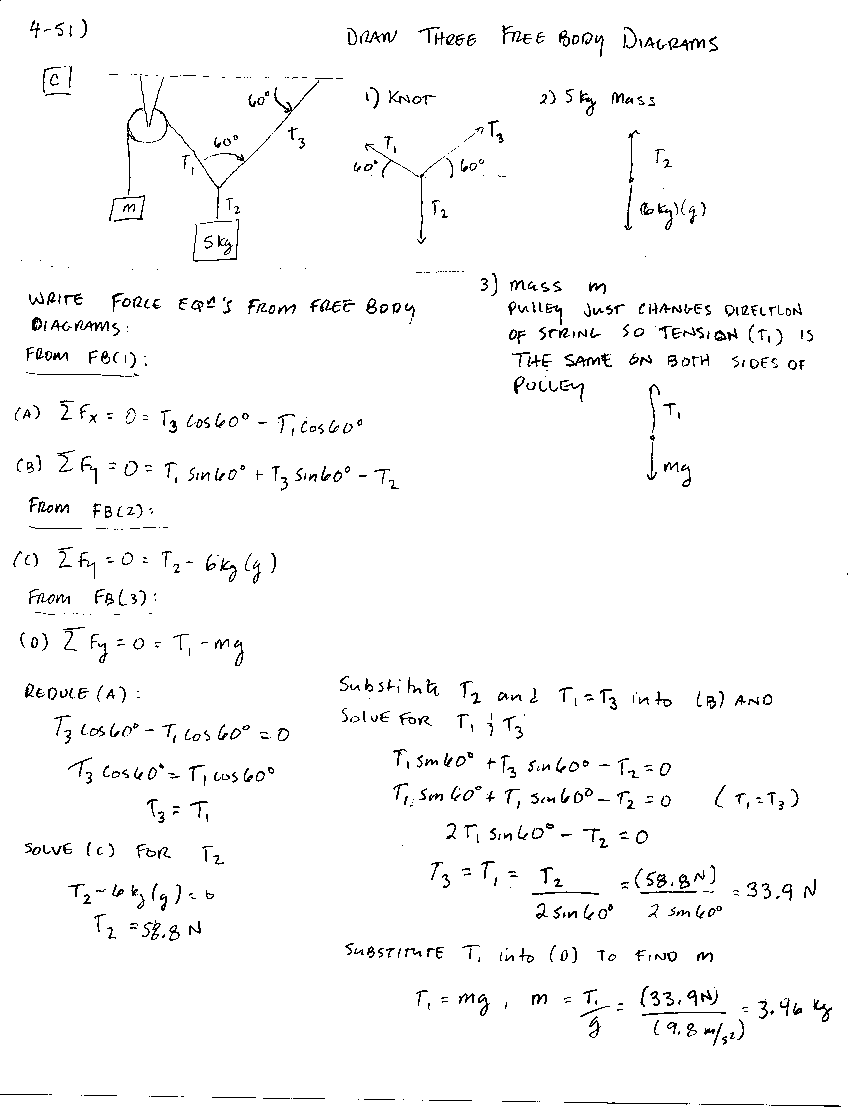 4-51)
DRAW THREE FREE BODY DIAGRAMS
C
60°
60°
T₁
T₃
T₂
m
5kg
1) KNOT
T₁
T₃
60°
60°
T₂
2) 5kg mass
T₂
(6kg)(g)
3) mass m
PULLEY JUST CHANGES DIRECTION
OF STRING SO TENSION (T₁) IS
THE SAME ON BOTH SIDES OF
PULLEY
T₁
mg
WRITE FORCE EQN'S FROM FREE BODY
DIAGRAMS:
FROM FB(1):
(A) ΣFx = 0 = T₃ cos60° - T₁ cos60°
(B) ΣFy = 0 = T₁ sin60° + T₃ sin60° - T₂
FROM FB(2):
(C) ΣFy = 0 = T₂ - 6kg(g)
FROM FB(3):
(D) ΣFy = 0 = T₁ - mg
REDUCE (A):
T₃ cos60° - T₁ cos60° = 0
T₃ cos60° = T₁ cos60°
T₃ = T₁
SOLVE (C) FOR T₂
T₂ - 6kg(g) = 0
T₂ = 58.8 N
Substitute T₂ and T₁ = T₃ into (B) AND
SOLVE FOR T₁ & T₃
T₁ sin60° + T₃ sin60° - T₂ = 0
T₁ sin60° + T₁ sin60° - T₂ = 0 (T₁ = T₃)
2T₁ sin60° - T₂ = 0
T₃ = T₁ = T₂ / 2 sin60° = (58.8N) / 2 sin60° = 33.9 N
SUBSTITUTE T₁ into (D) TO FIND m
T₁ = mg, m = T₁ / g = (33.9N) / (9.8 m/s²) = 3.46 kg